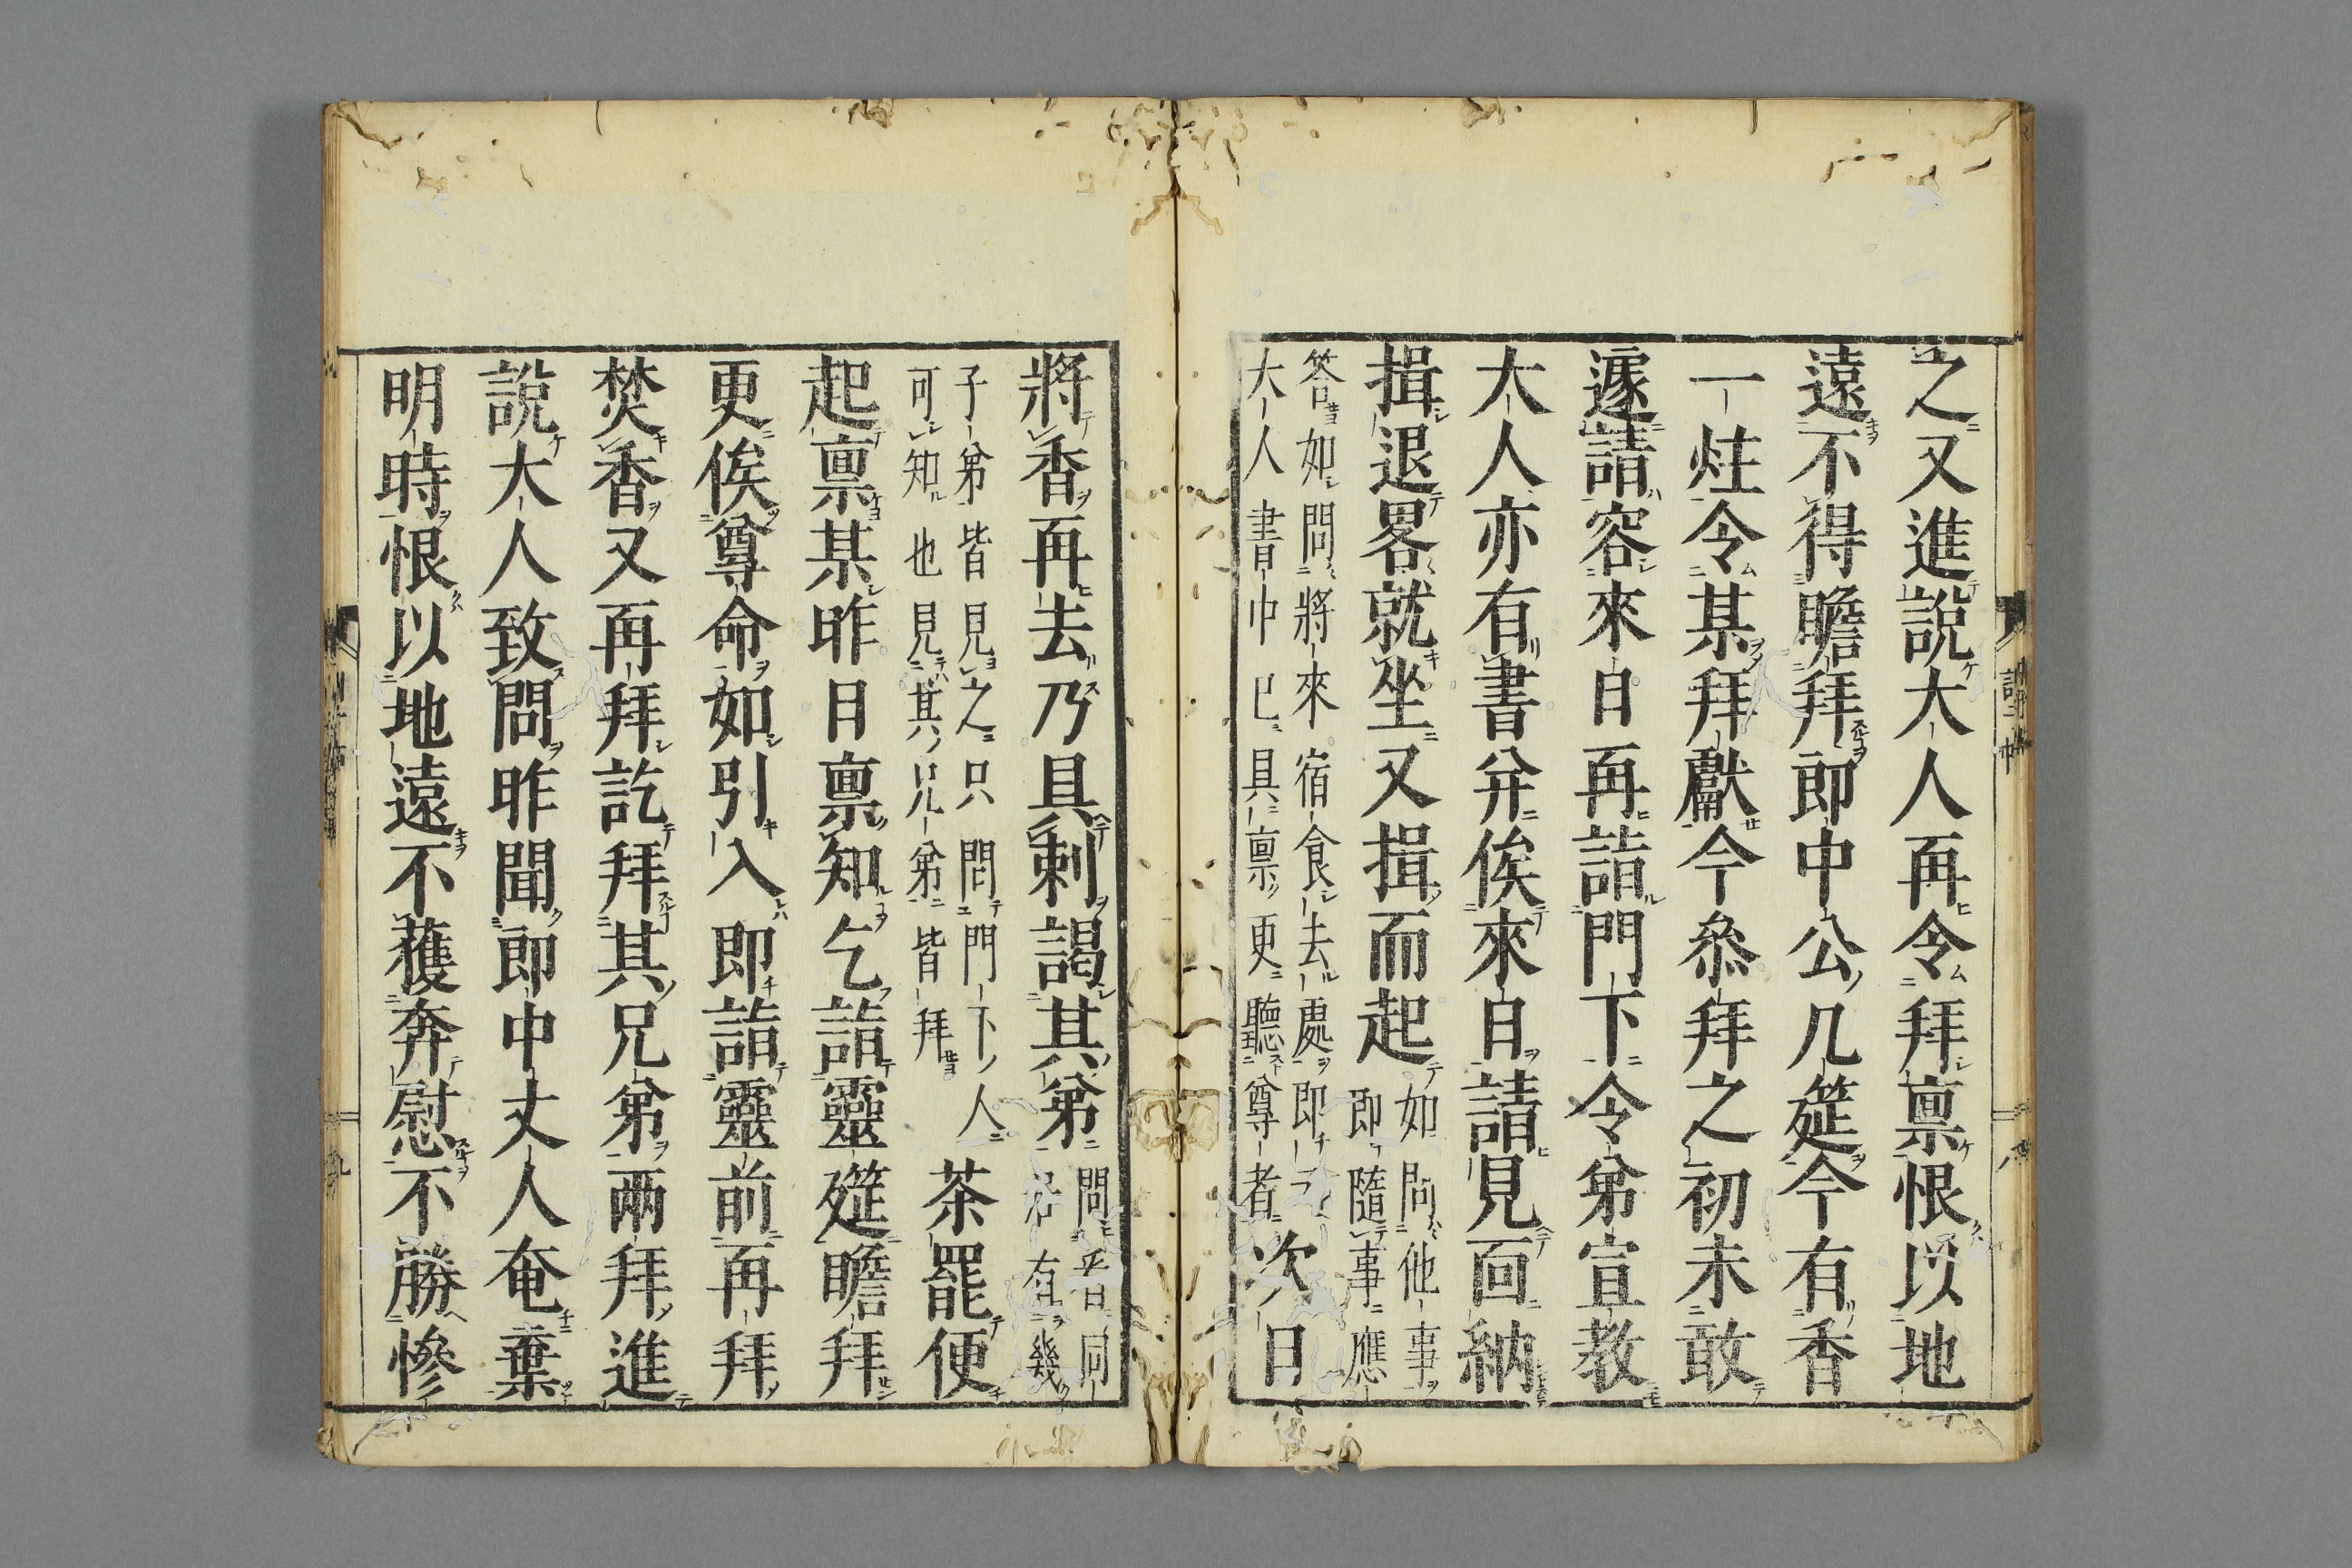 之又進說大人再令拜禀恨以地
遠不得瞻拜即中公几筵今有香
一炷令某拜獻今叅拜之初未敢
遽請容來日再詣門下令弟宣教
大人亦有書并俟來日請見面納
揖退畧就坐又揖而起如問他事
即隨事應
答如問將來宿食去處即云
大人書中已具禀更聽尊者次日
將香再去乃具刺謁其弟問
有幾
子弟皆見之只問門下人
可知也見其兄弟皆拜茶罷便
起禀某昨日禀知乞詣靈筵瞻拜
更俟尊命如引入即詣靈前再拜
焚香又再拜訖拜其兄弟兩拜進
說大人致問昨聞即中丈人奄棄
明時恨以地遠不獲奔慰不勝慘